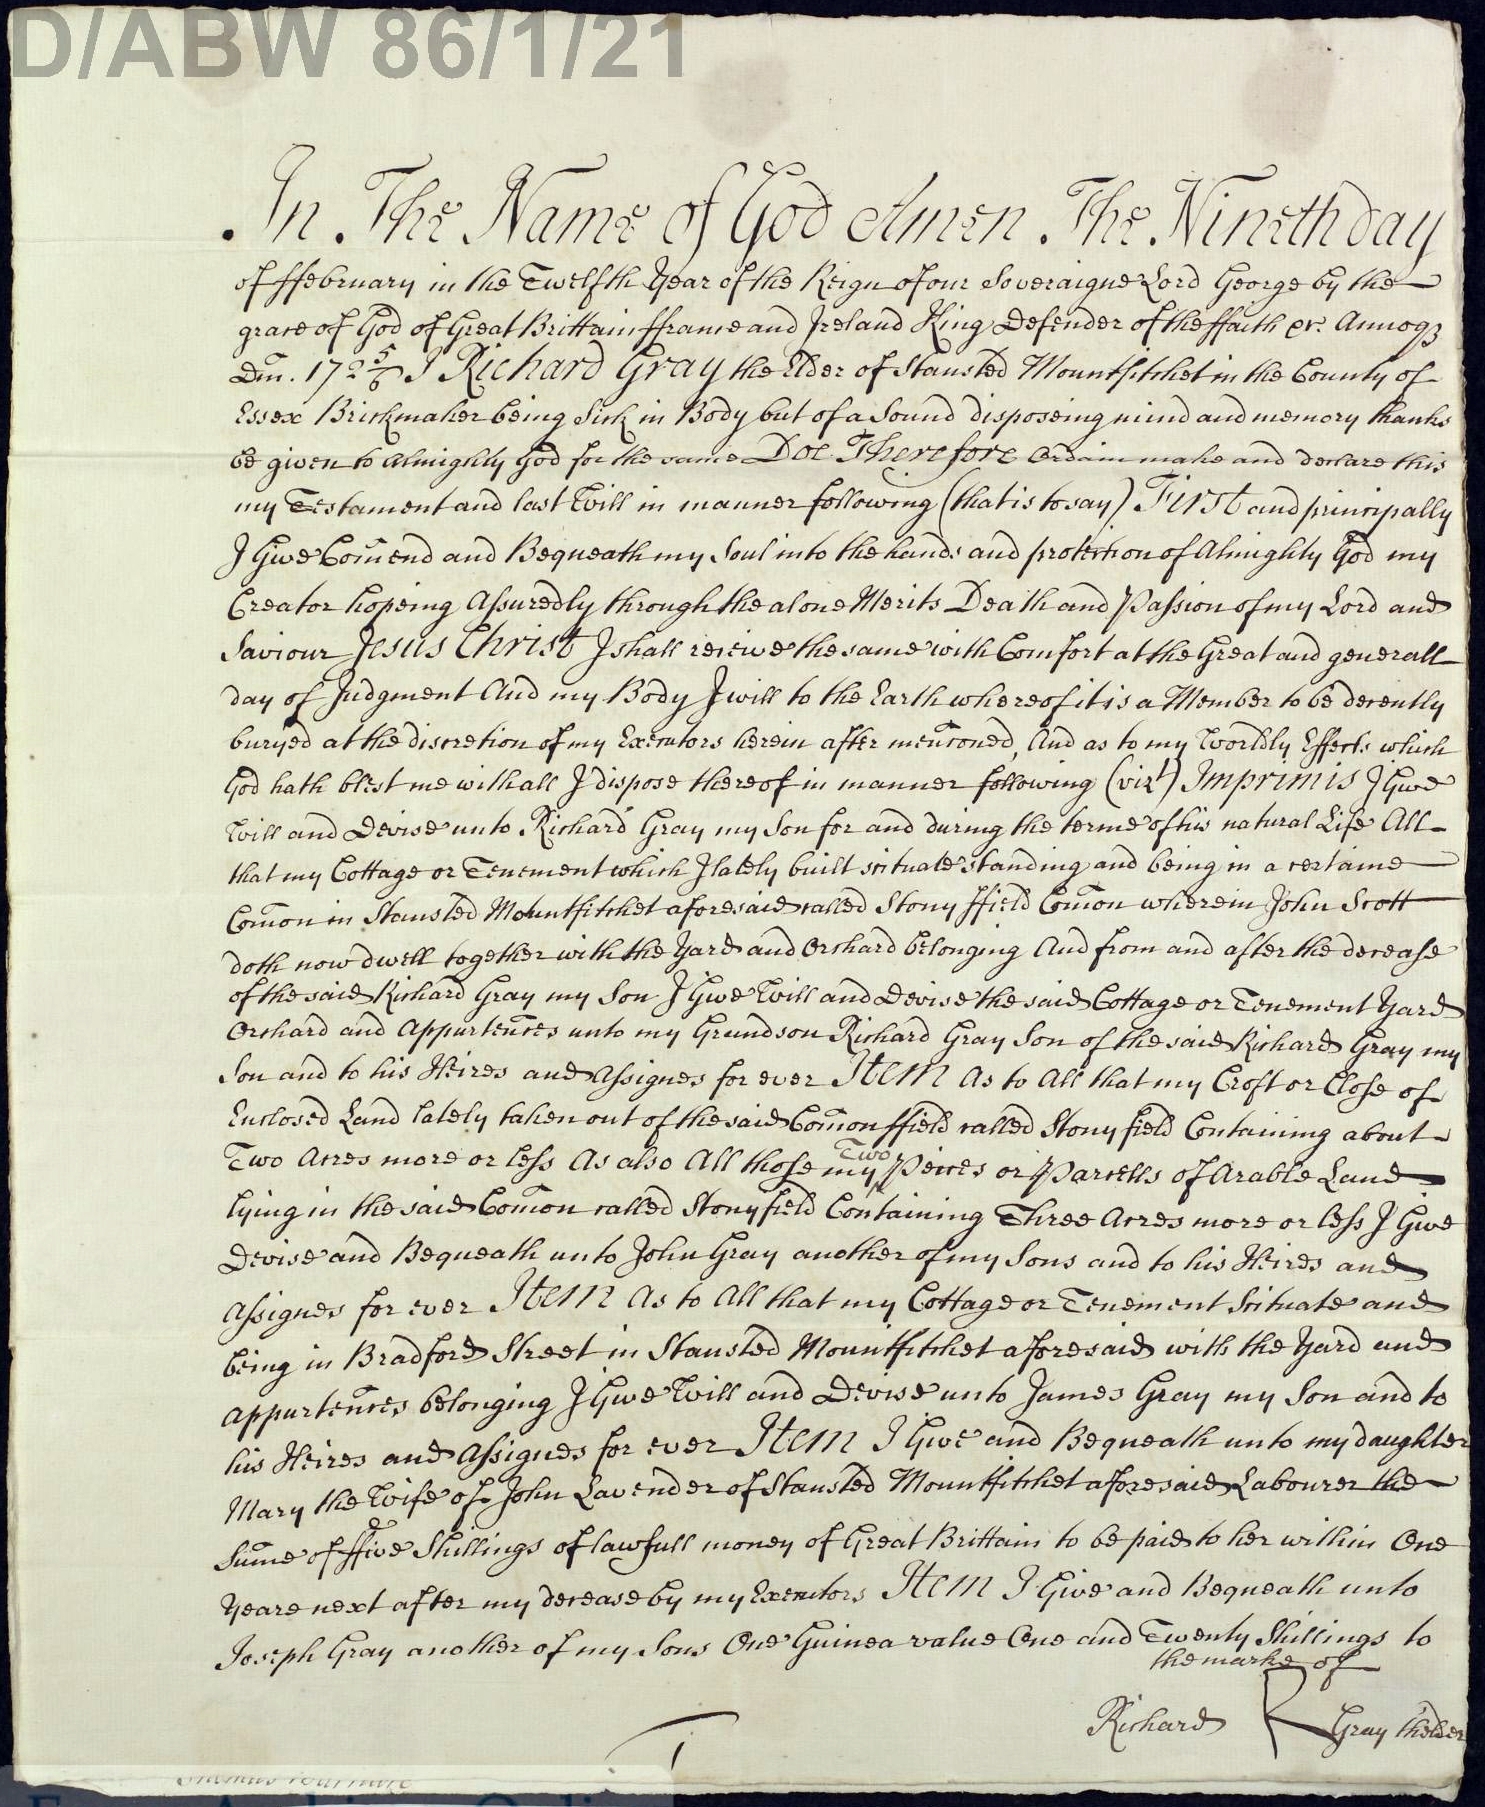 D/ABW 86/1/21
In The Name of God Amen The Nineth day
of ffebruary in the Twelfth Year of the Reign of our Soveraigne Lord George by the
grace of God of Great Brittain ffrance and Ireland King Defender of the ffaith &c. Annoqz
Dm̅. 172 5/6 I Richard Gray the Elder of Stansted Mountfitchet in the County of
Essex Brickmaker being Sick in Body but of a Sound disposeing mind and memory thanks
be given to Almighty God for the same Doe Therefore Ordain make and declare this
my Testament and last Will in manner following (that is to say) First and principally
I Give Com̅end and Bequeath my Soul into the hands and protection of Almighty God my
Creator hopeing Assuredly through the alone Merits Death and Passion of my Lord and
Saviour Jesus Christ I shall receive the same with Comfort at the Great and generall
day of Judgment And my Body I will to the Earth whereof it is a Member to be decently
buryed at the discretion of my Executors herein after menc̅oned, And as to my Worldly Effects which
God hath blest me withall I dispose thereof in manner following (vizt) Imprimis I Give
Will and Devise unto Richard Gray my Son for and during the terme of his natural Life All
that my Cottage or Tenement which I lately built scituate standing and being in a certaine
Com̅on in Stansted Mountfitchet aforesaid called Stony ffield Com̅on wherein John Scott
doth now dwell together with the Yard and Orchard belonging And from and after the decease
of the said Richard Gray my Son I Give Will and Devise the said Cottage or Tenement Yard
Orchard and Appurten̅ces unto my Grandson Richard Gray Son of the said Richard Gray my
Son and to his Heires and Assignes for ever Item As to All that my Croft or Close of
Enclosed Land lately taken out of the said Com̅on ffield called Stony field Containing about
Two Acres more or less As also All those my Two Peices or Parcells of Arable Land
lying in the said Com̅on called Stonyfield Containing Three Acres more or less I Give
Devise and Bequeath unto John Gray another of my Sons and to his Heires and
Assignes for ever Item As to All that my Cottage or Tenement Scituate and
being in Bradford Street in Stansted Mountfitchet aforesaid with the Yard and
appurten̅ces belonging I Give Will and Devise unto James Gray my Son and to
his Heires and Assignes for ever Item I Give and Bequeath unto my daughter
Mary the Wife of John Lavender of Stansted Mountfitchet aforesaid Labourer the
Sum̅e of ffive Shillings of lawfull money of Great Brittain to be paid to her within One
Yeare next after my decease by my Executors Item I Give and Bequeath unto
Joseph Gray another of my Sons One Guinea value One and Twenty Shillings to
the marke of
Richard R Gray thelder